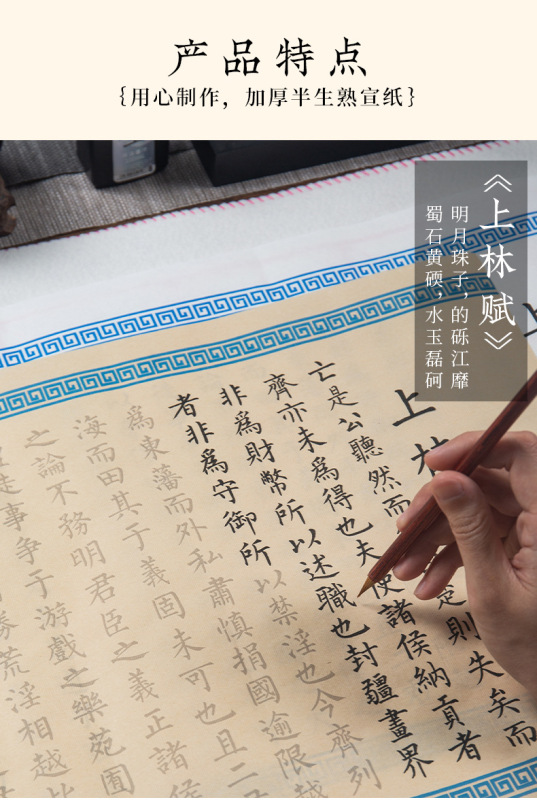 产品特点
{用心制作，加厚半生熟宣纸}
《上林赋》
明月珠子，的砾江靡
蜀石黄碝，水玉磊砢
上林
亡是公聽然而 則失矣而
齊亦未爲得也夫使諸侯納貢者
非爲財幣所以述職也封疆畫界
者非爲守御所以禁淫也今齊列
爲東藩而外私肅慎捐國逾限越
海而田其于義固未可也且二
之論不務明君臣之義正諸侯
徒事争于游戲之樂苑囿
勝荒淫相越